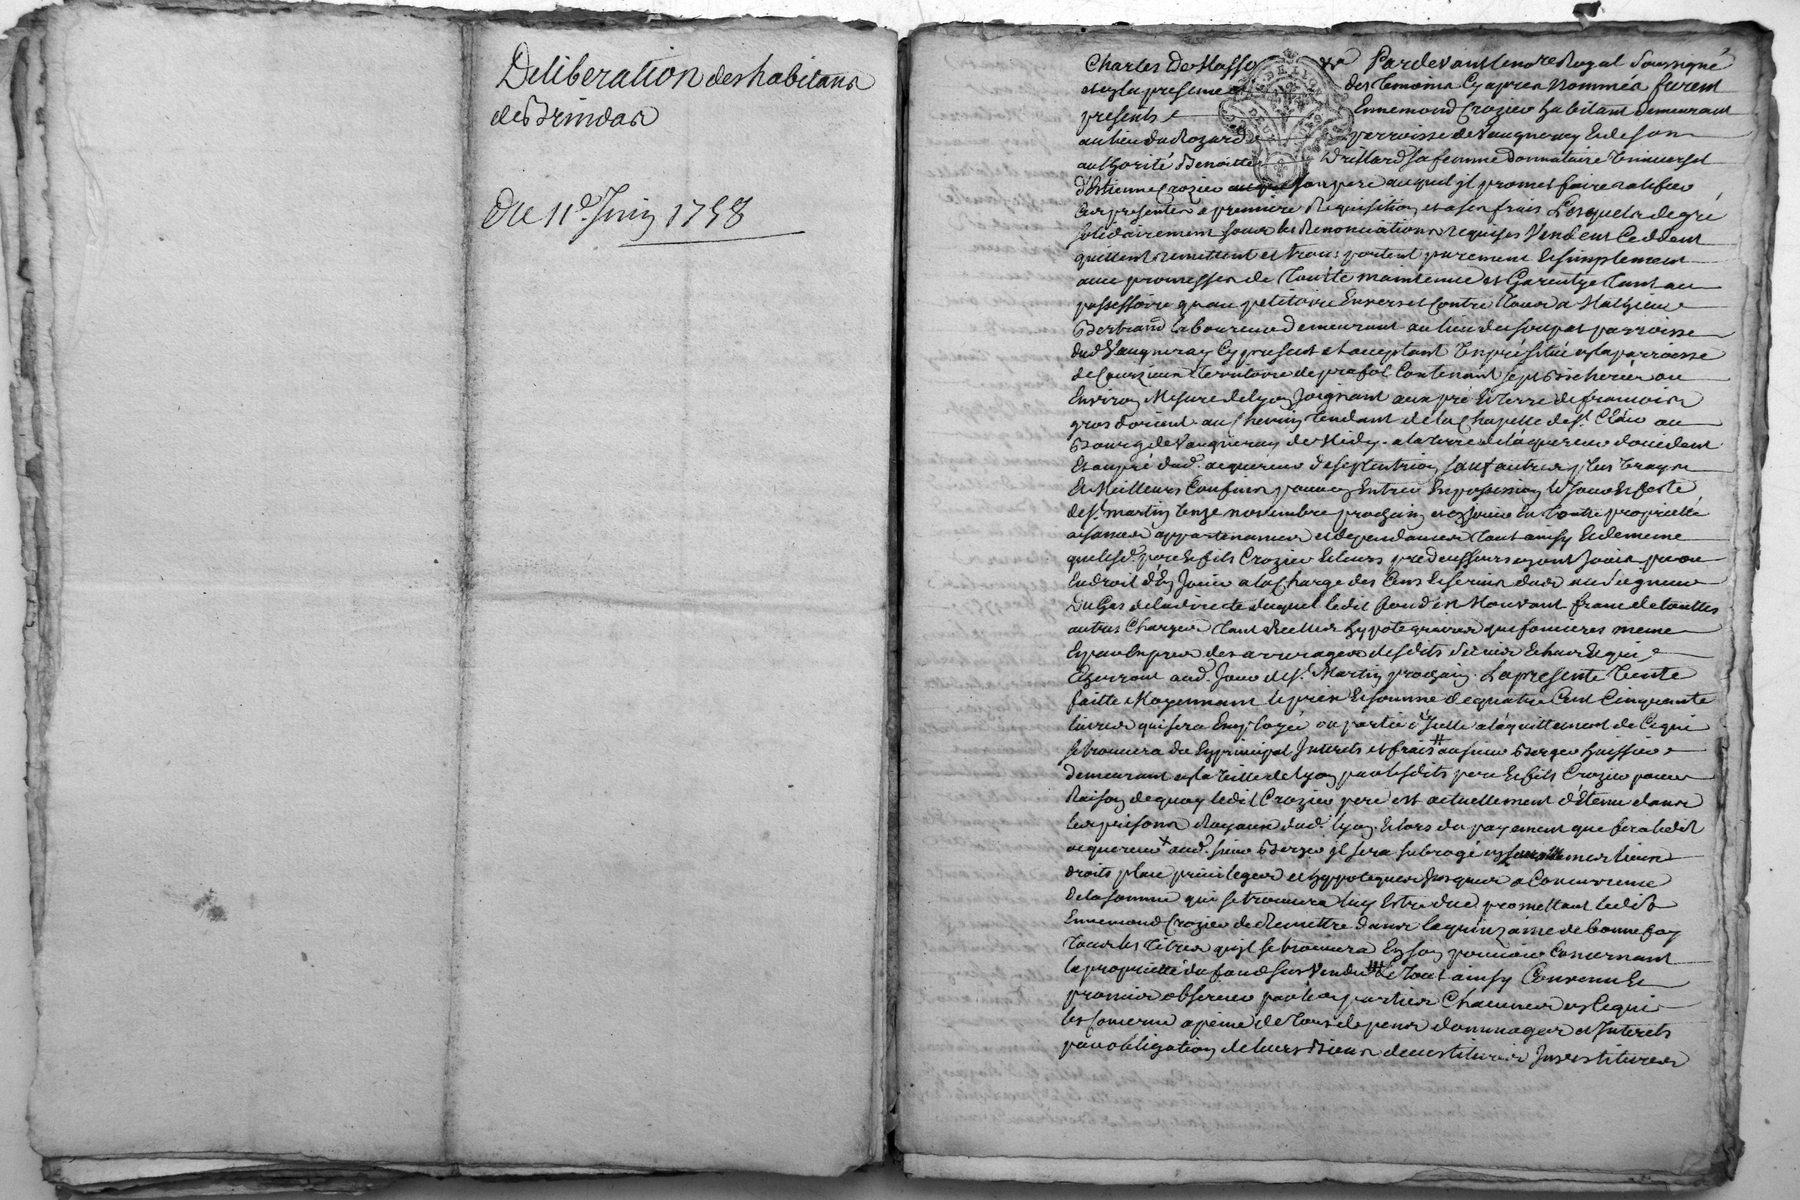 Deliberation des habitans
de Brindas
Du 11e. Juin 1758
DE LYON
DEUX
Pardevant le no.re Royal soussigné
et en la presence des temoins cy apres nommés furent
presents Ennemond Crozier habitant demeurant
au lieu du Rozard perroisse de Vaugneray et de son
authorité Benoitte Drillard sa femme donnataire universel
d'Estienne Crozier son pere auquel jl promet faire ratiffier
ces presentes a premiere Requisition et a ses frais Lesquels de gré
solidairement sous les Renonciations requises Vendent Ceddent
quittent remettent et transportent purement et simplement
avec promesses de toutte maintenue et Garentye tant au
possessoire qu'au petitoire Envers et Contre tous a Mathieu
Bertrand laboureur demeurant au lieu du soupat parroisse
dud. Vaugneray Cy present et acceptant un pré scitué en la parroisse
de Courzieu territoire de prafol Contenant sept bicherées ou
Environ Mesure de lyon Joignant aux pré et terre de francois
gros d'orient au Chemin tendant de la Chapelle de st. Clair au
Bourg de Vaugneray de Midy a la terre de l'aquereur d'occident
et au pré dud. acquereur de septentrion sauf autres plus vrays
et Meilleurs Confins pour en Entrer En possession le Jour et feste
de st. martin onze novembre prochain et en Jouir En toutte proprietté
aisances appartenances et dependances tout ainsy et de meme
que lesd. pere et fils Crozier et leurs predecesseurs en ont Joui ou
Eu droit d'En Jouir a la Charge des Cens et servis dus au seigneur
Du Gas de la directe duquel ledit fond est Mouvant franc de touttes
autres Charges tant Reelles hypotequaires que foncieres meme
des arrerages desdits servis Echus et qui
Echerront aud. Jour de st. Martin prochain. La presente Vente
faitte Moyennant le prix et somme de quatre Cent Cinquante
livres qui sera Employée ou partie d'Icelle a l'aquittement de Ce qui
se trouvera du En principal Interets et frais au sieur Berger huissier
demeurant en la Ville de lyon par lesdits pere et fils Crozier pour
Raison de quoy ledit Crozier pere est actuellement détenu dans
les prisons Royaux dud. lyon. Et lors du payement que fera ledit
acquereur aud. sieur Berger jl sera subrogé en ses lieux
droits place privileges et hyppoteques Jusques a Concurrence
de la somme qui se trouvera luy Estre due promettant ledit
Ennemond Crozier de Remettre dans la quinzaine de bonne foy
tous les titres qu'jl se trouvera En son pouvoir Concernant
la proprieté du fond sus Vendu Le tout ainsy Convenu et
promis observer par les parties Chacunes en Ce qui
les Concerne a peine de tous depens dommages et Interets
par obligation de leurs Biens